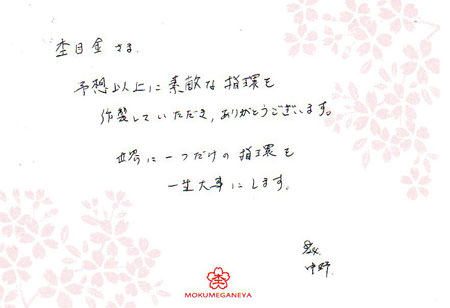 杢目金さま
予想以上に素敵な指環を
作製していただき、ありがとうございます。
世界に一つだけの指環を
一生大事にします。
中野
MOKUMEGANEYA